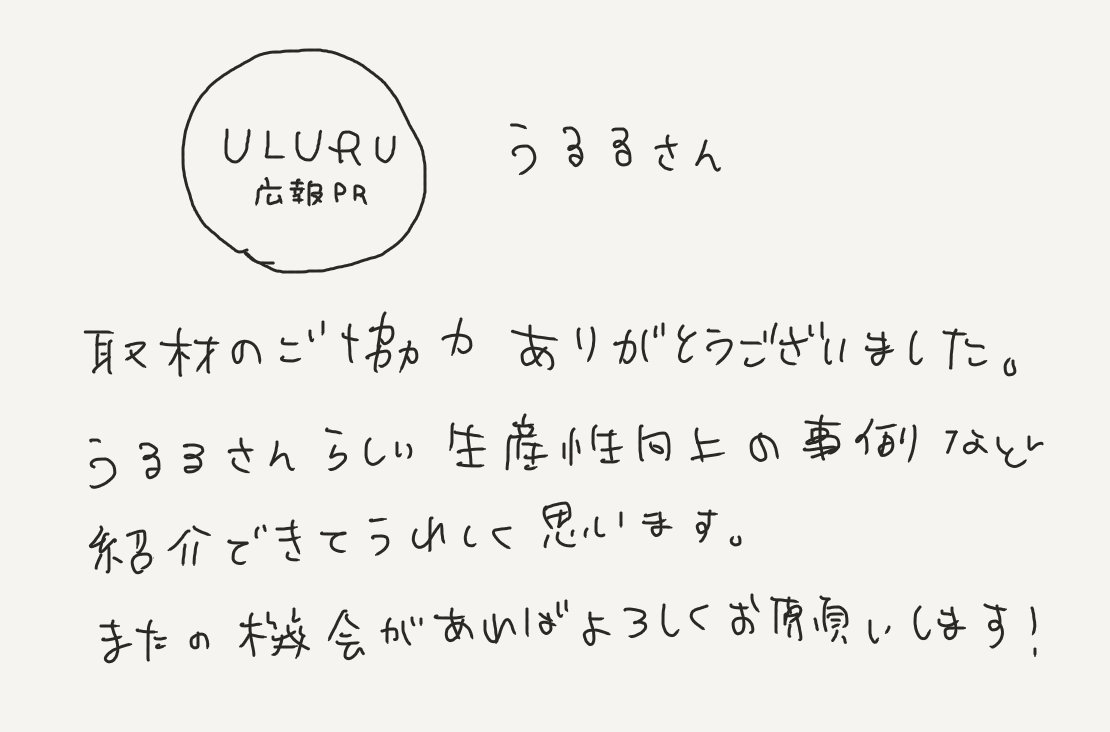 ULURU
広報PR
うるるさん
取材のご協力ありがとうございました。
うるるさんらしい生産性向上の事例など
紹介できてうれしく思います。
またの機会があればよろしくお願いします!